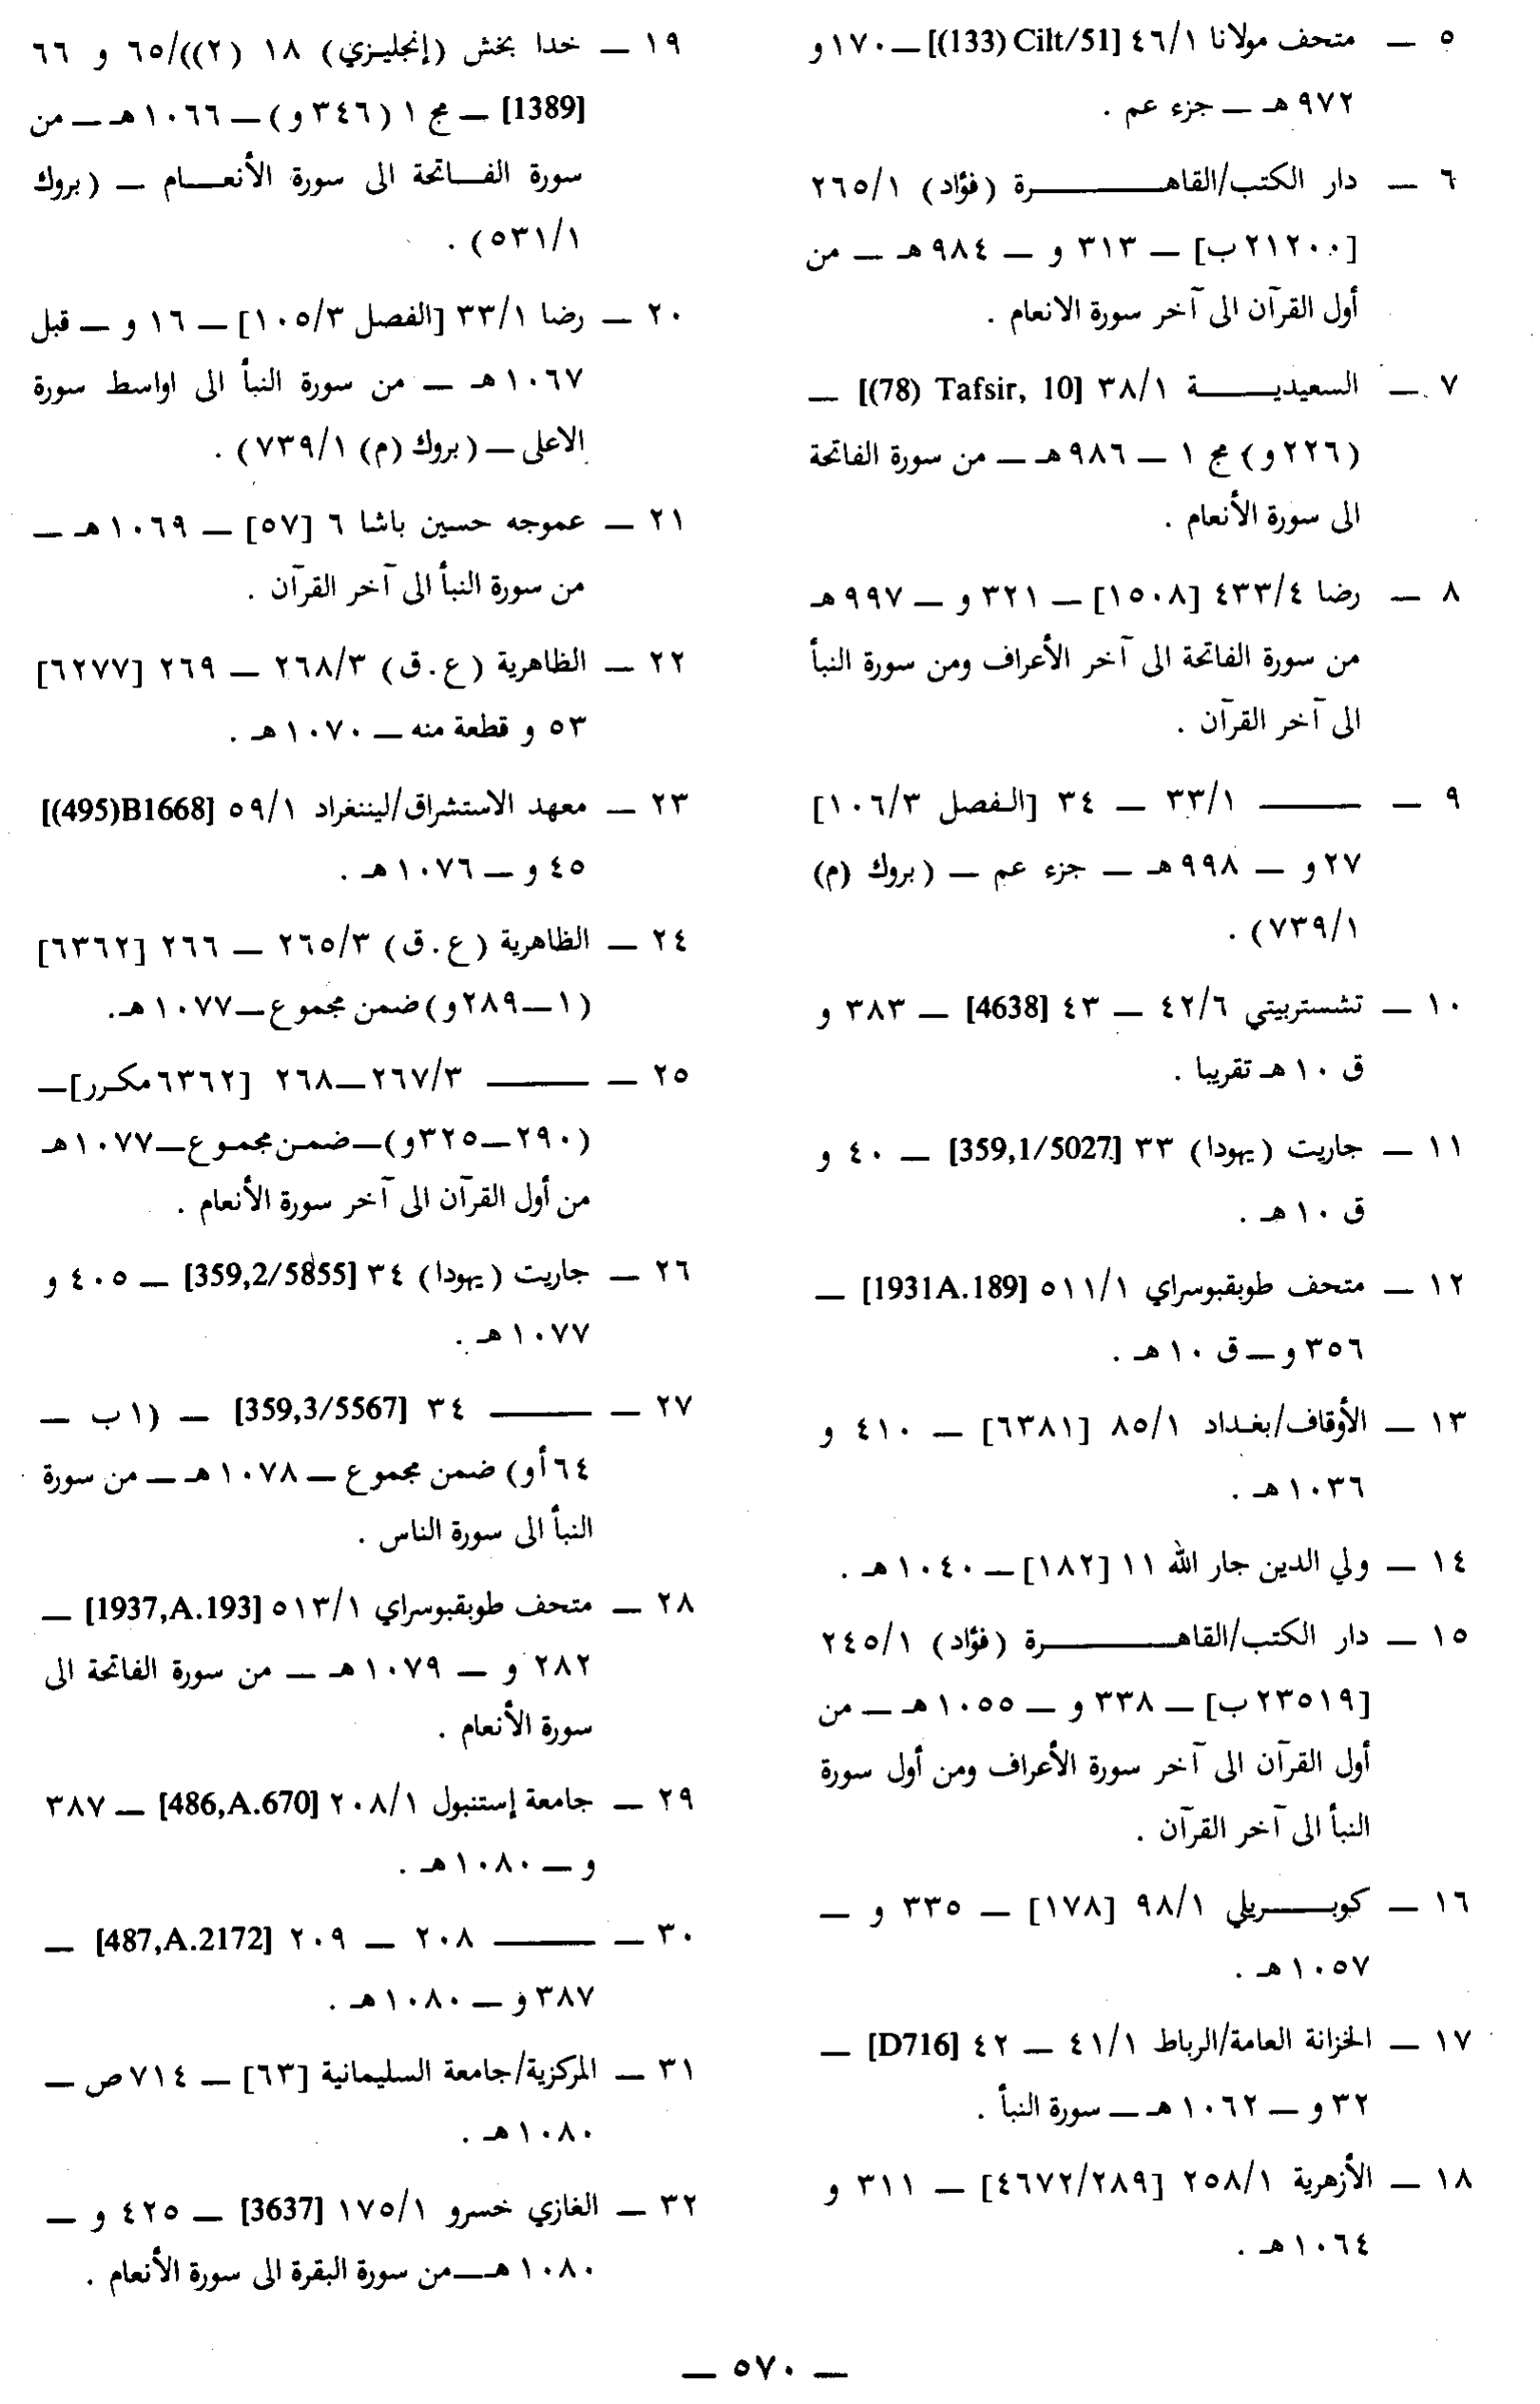 ٥ — متحف مولانا ٤٦/١ [(133) Cilt/51] — ١٧٠و
٩٧٢هـ — جزء عم .
٦ — دار الكتب/القاهـــرة (فؤاد) ٢٦٥/١
[٢١٢٠٠ب] — ٣١٣ و — ٩٨٤هـ — من
أول القرآن الى آخر سورة الانعام .
٧ — السعيديـــة ٣٨/١ [(78) Tafsir, 10] —
(٢٢٦و) مج ١ — ٩٨٦هـ — من سورة الفاتحة
الى سورة الأنعام .
٨ — رضا ٤٣٣/٤ [١٥٠٨] — ٣٢١ و — ٩٩٧هـ
من سورة الفاتحة الى آخر الأعراف ومن سورة النبأ
الى آخر القرآن .
٩ — ——— ٣٣/١ — ٣٤ [الفصل ١٠٦/٣]
٢٧و — ٩٩٨هـ — جزء عم — (بروك (م)
٧٣٩/١) .
١٠ — تشستربيتي ٤٢/٦ — ٤٣ [4638] — ٣٨٣ و
ق ١٠هـ تقريبا .
١١ — جاريت (يهودا) ٣٣ [359,1/5027] — ٤٠ و
ق ١٠هـ .
١٢ — متحف طوبقبوسراي ٥١١/١ [1931A.189] —
٣٥٦ و — ق ١٠هـ .
١٣ — الأوقاف/بغداد ٨٥/١ [٦٣٨١] — ٤١٠ و
١٠٣٦هـ .
١٤ — ولي الدين جار الله ١١ [١٨٢] — ١٠٤٠هـ .
١٥ — دار الكتب/القاهـــرة (فؤاد) ٢٤٥/١
[٢٣٥١٩ب] — ٣٣٨ و — ١٠٥٥هـ — من
أول القرآن الى آخر سورة الأعراف ومن أول سورة
النبأ الى آخر القرآن .
١٦ — كوبـــريلي ٩٨/١ [١٧٨] — ٣٣٥ و —
١٠٥٧هـ .
١٧ — الخزانة العامة/الرباط ٤١/١ — ٤٢ [D716] —
٣٢و — ١٠٦٢هـ — سورة النبأ .
١٨ — الأزهرية ٢٥٨/١ [٤٦٧٢/٢٨٩] — ٣١١ و
١٠٦٤هـ .
١٩ — خدا بخش (إنجليزي) ١٨ (٢))/٦٥ و ٦٦
[1389] — مج ١ (٣٤٦و) — ١٠٦٦هـ — من
سورة الفـاتحة الى سورة الأنعـام — (بروك
٥٣١/١) .
٢٠ — رضا ٣٣/١ [الفصل ١٠٥/٣] — ١٦ و — قبل
١٠٦٧هـ — من سورة النبأ الى اواسط سورة
الاعلى — (بروك (م) ٧٣٩/١) .
٢١ — عموجه حسين باشا ٦ [٥٧] — ١٠٦٩هـ —
من سورة النبأ الى آخر القرآن .
٢٢ — الظاهرية (ع.ق) ٢٦٨/٣ — ٢٦٩ [٦٢٧٧]
٥٣ و قطعة منه — ١٠٧٠هـ .
٢٣ — معهد الاستشراق/ليننغراد ٥٩/١ [(495)B1668]
٤٥ و — ١٠٧٦هـ .
٢٤ — الظاهرية (ع.ق) ٢٦٥/٣ — ٢٦٦ [٦٣٦٢]
(١—٢٨٩و) ضمن مجموع—١٠٧٧هـ.
٢٥ — ——— ٢٦٧/٣—٢٦٨ [٦٣٦٢مكرر]—
(٢٩٠—٣٢٥و)—ضمن مجموع—١٠٧٧هـ
من أول القرآن الى آخر سورة الأنعام .
٢٦ — جاريت (يهودا) ٣٤ [359,2/5855] — ٤٠٥ و
١٠٧٧هـ .
٢٧ — ——— ٣٤ [359,3/5567] — (١ب —
٦٤أو) ضمن مجموع — ١٠٧٨هـ — من سورة
النبأ الى سورة الناس .
٢٨ — متحف طوبقبوسراي ٥١٣/١ [1937,A.193] —
٢٨٢ و — ١٠٧٩هـ — من سورة الفاتحة الى
سورة الأنعام .
٢٩ — جامعة إستنبول ٢٠٨/١ [486,A.670] — ٣٨٧
و — ١٠٨٠هـ .
٣٠ — ——— ٢٠٨ — ٢٠٩ [487,A.2172] —
٣٨٧و — ١٠٨٠هـ .
٣١ — المركزية/جامعة السليمانية [٦٣] — ٧١٤ص —
١٠٨٠هـ .
٣٢ — الغازي خسرو ١٧٥/١ [3637] — ٤٢٥ و —
١٠٨٠هـ—من سورة البقرة الى سورة الأنعام .
— ٥٧٠ —